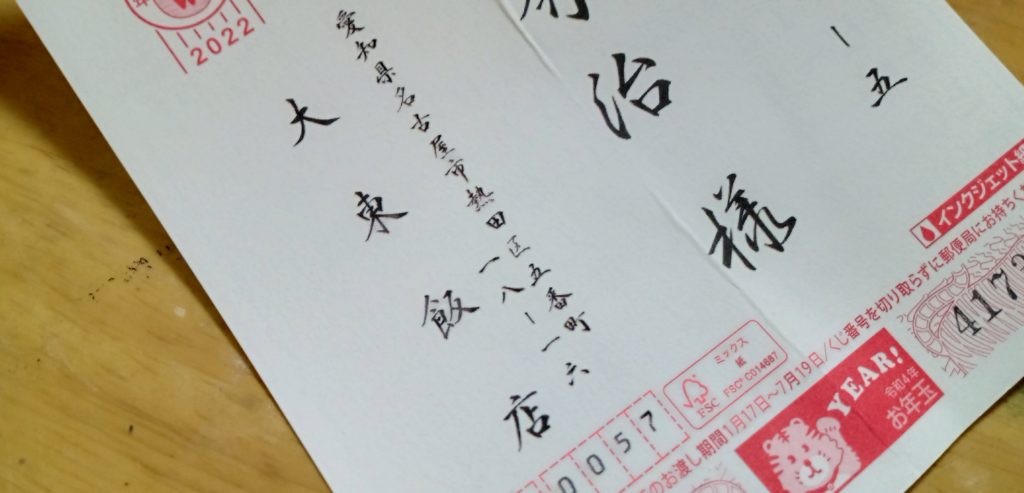 ー五
治様
愛知県名古屋市熱田区五番町
一八ー一六
大東飯店
2022
インクジェット
ミックス
紙
FSC
FSC® C014687
0057
のお渡し期間1月17日~7月19日/くじ番号を切り取らずに郵便局にお持ちく
YEAR!
令和4年
お年玉
417